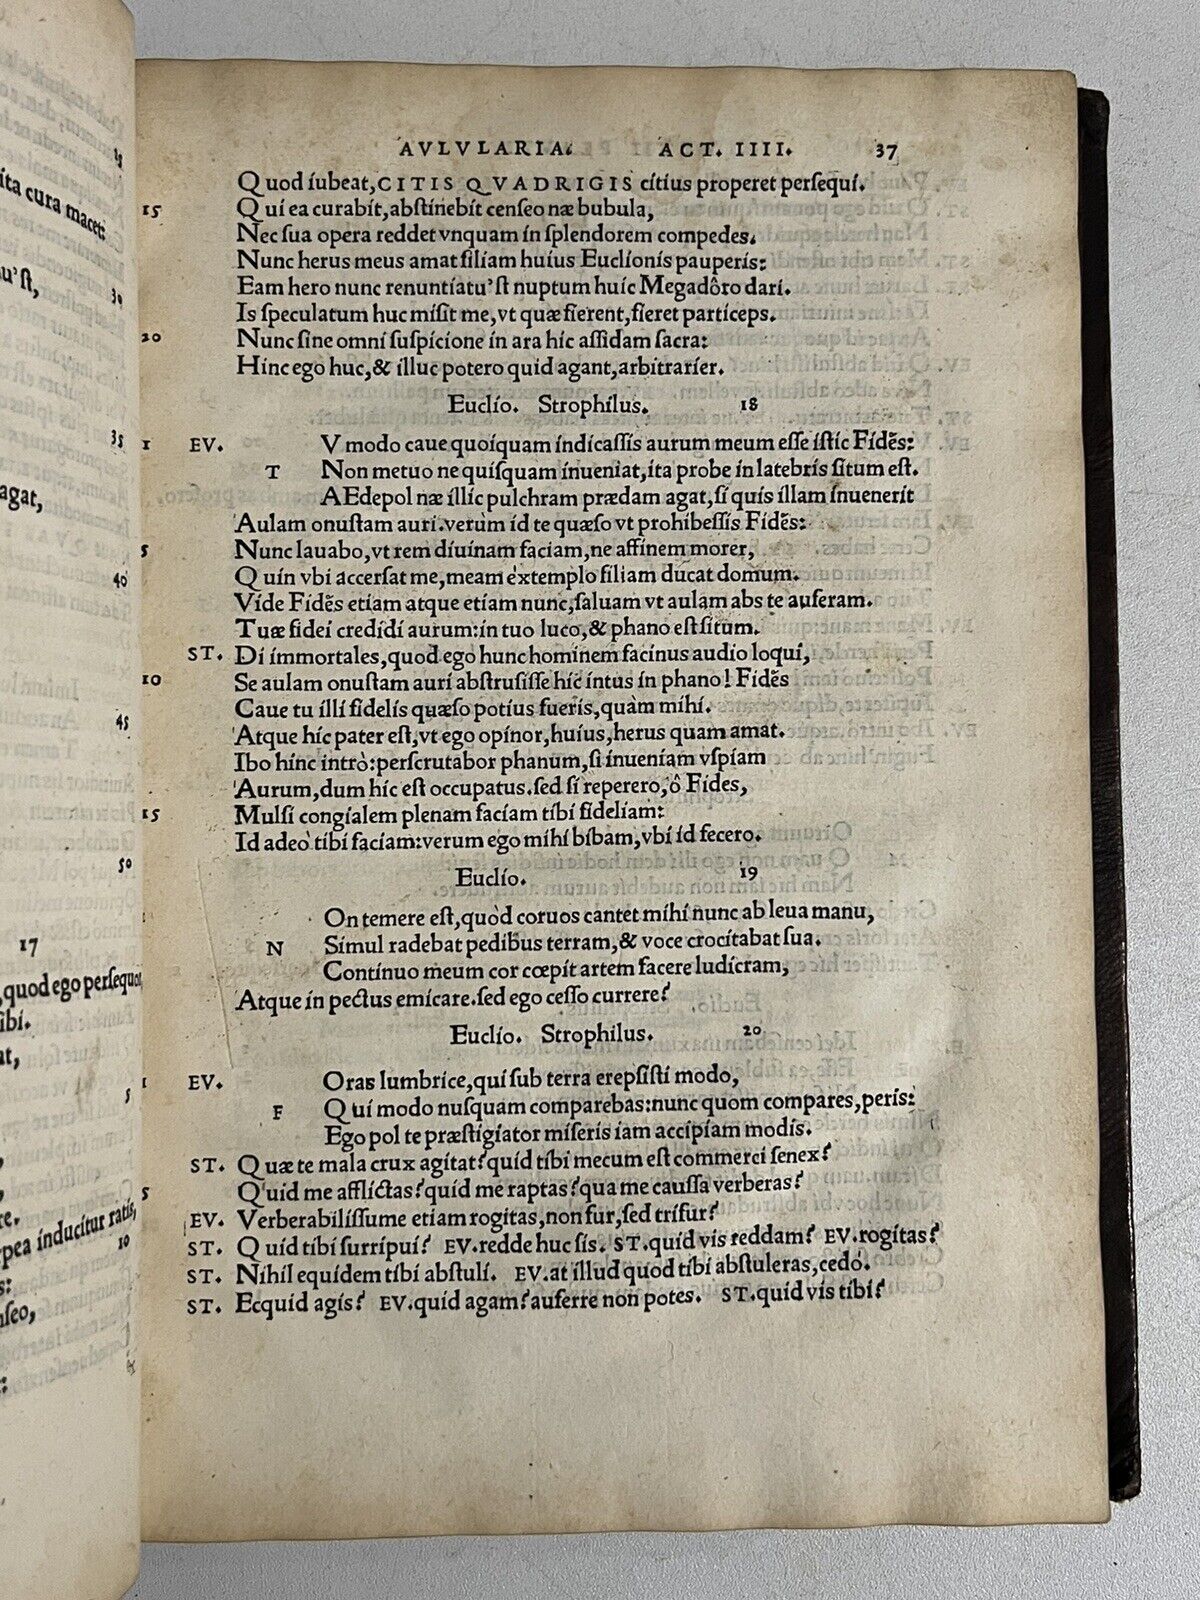 ita cura macet:
u'ſt,
30
35
agat,
40
45
50
17
, quod ego perſequor
ſibi.
5
pea inducitur ratis,
10
nſeo,
AVLVLARIA. ACT. IIII. 37
Quod iubeat, CITIS QVADRIGIS citius properet perſequi.
15 Qui ea curabit, abſtinebit cenſeo næ bubula,
Nec ſua opera reddet vnquam in ſplendorem compedes.
Nunc herus meus amat filiam huius Euclionis pauperis:
Eam hero nunc renuntiatu'ſt nuptum huic Megadôro dari.
Is ſpeculatum huc miſit me, vt quæ fierent, fieret particeps.
20 Nunc ſine omni ſuſpicione in ara hic aſſidam ſacra:
Hinc ego huc, & illuc potero quid agant, arbitrarier.
Euclio. Strophilus. 18
1 EV. V modo caue quoiquam indicaſſis aurum meum eſſe iſtic Fidẽs:
T Non metuo ne quiſquam inueniat, ita probe in latebris ſitum eſt.
AEdepol næ illic pulchram prædam agat, ſi quis illam inuenerit
Aulam onuſtam auri. verùm id te quæſo vt prohibeſſis Fidẽs:
5 Nunc lauabo, vt rem diuinam faciam, ne affinem morer,
Quin vbi accerſat me, meam èxtemplo filiam ducat domum.
Vide Fidẽs etiam atque etiam nunc, ſaluam vt aulam abs te auferam.
Tuæ fidei credidi aurum: in tuo luco, & phano eſt ſitum.
ST. Di immortales, quod ego hunc hominem facinus audio loqui,
10 Se aulam onuſtam auri abſtruſiſſe hic intus in phano! Fidẽs
Caue tu illi fidelis quæſo potius fueris, quàm mihi.
Atque hic pater eſt, vt ego opinor, huius, herus quam amat.
Ibo hinc intrò: perſcrutabor phanum, ſi inueniam vſpiam
Aurum, dum hic eſt occupatus. ſed ſi reperero, ô Fides,
15 Mulſi congialem plenam faciam tibi fideliam:
Id adeò tibi faciam: verum ego mihi bibam, vbi id fecero.
Euclio. 19
On temere eſt, quòd coruos cantet mihi nunc ab leua manu,
N Simul radebat pedibus terram, & voce crocitabat ſua.
Continuo meum cor cœpit artem facere ludicram,
Atque in pectus emicare. ſed ego ceſſo currere?
Euclio. Strophilus. 20
1 EV. Oras lumbrice, qui ſub terra erepſiſti modo,
F Qui modo nuſquam comparebas: nunc quom compares, peris:
Ego pol te præſtigiator miſeris iam accipiam modis.
ST. Quæ te mala crux agitat? quid tibi mecum eſt commerci ſenex?
5 Quid me afflictas? quid me raptas? qua me cauſſa verberas?
EV. Verberabiliſſume etiam rogitas, non fur, ſed trifur?
ST. Quid tibi ſurripui? EV. redde huc ſis. ST. quid vis reddam? EV. rogitas?
ST. Nihil equidem tibi abſtuli. EV. at illud quod tibi abſtuleras, cedò.
ST. Ecquid agis? EV. quid agam? auferre non potes. ST. quid vis tibi?